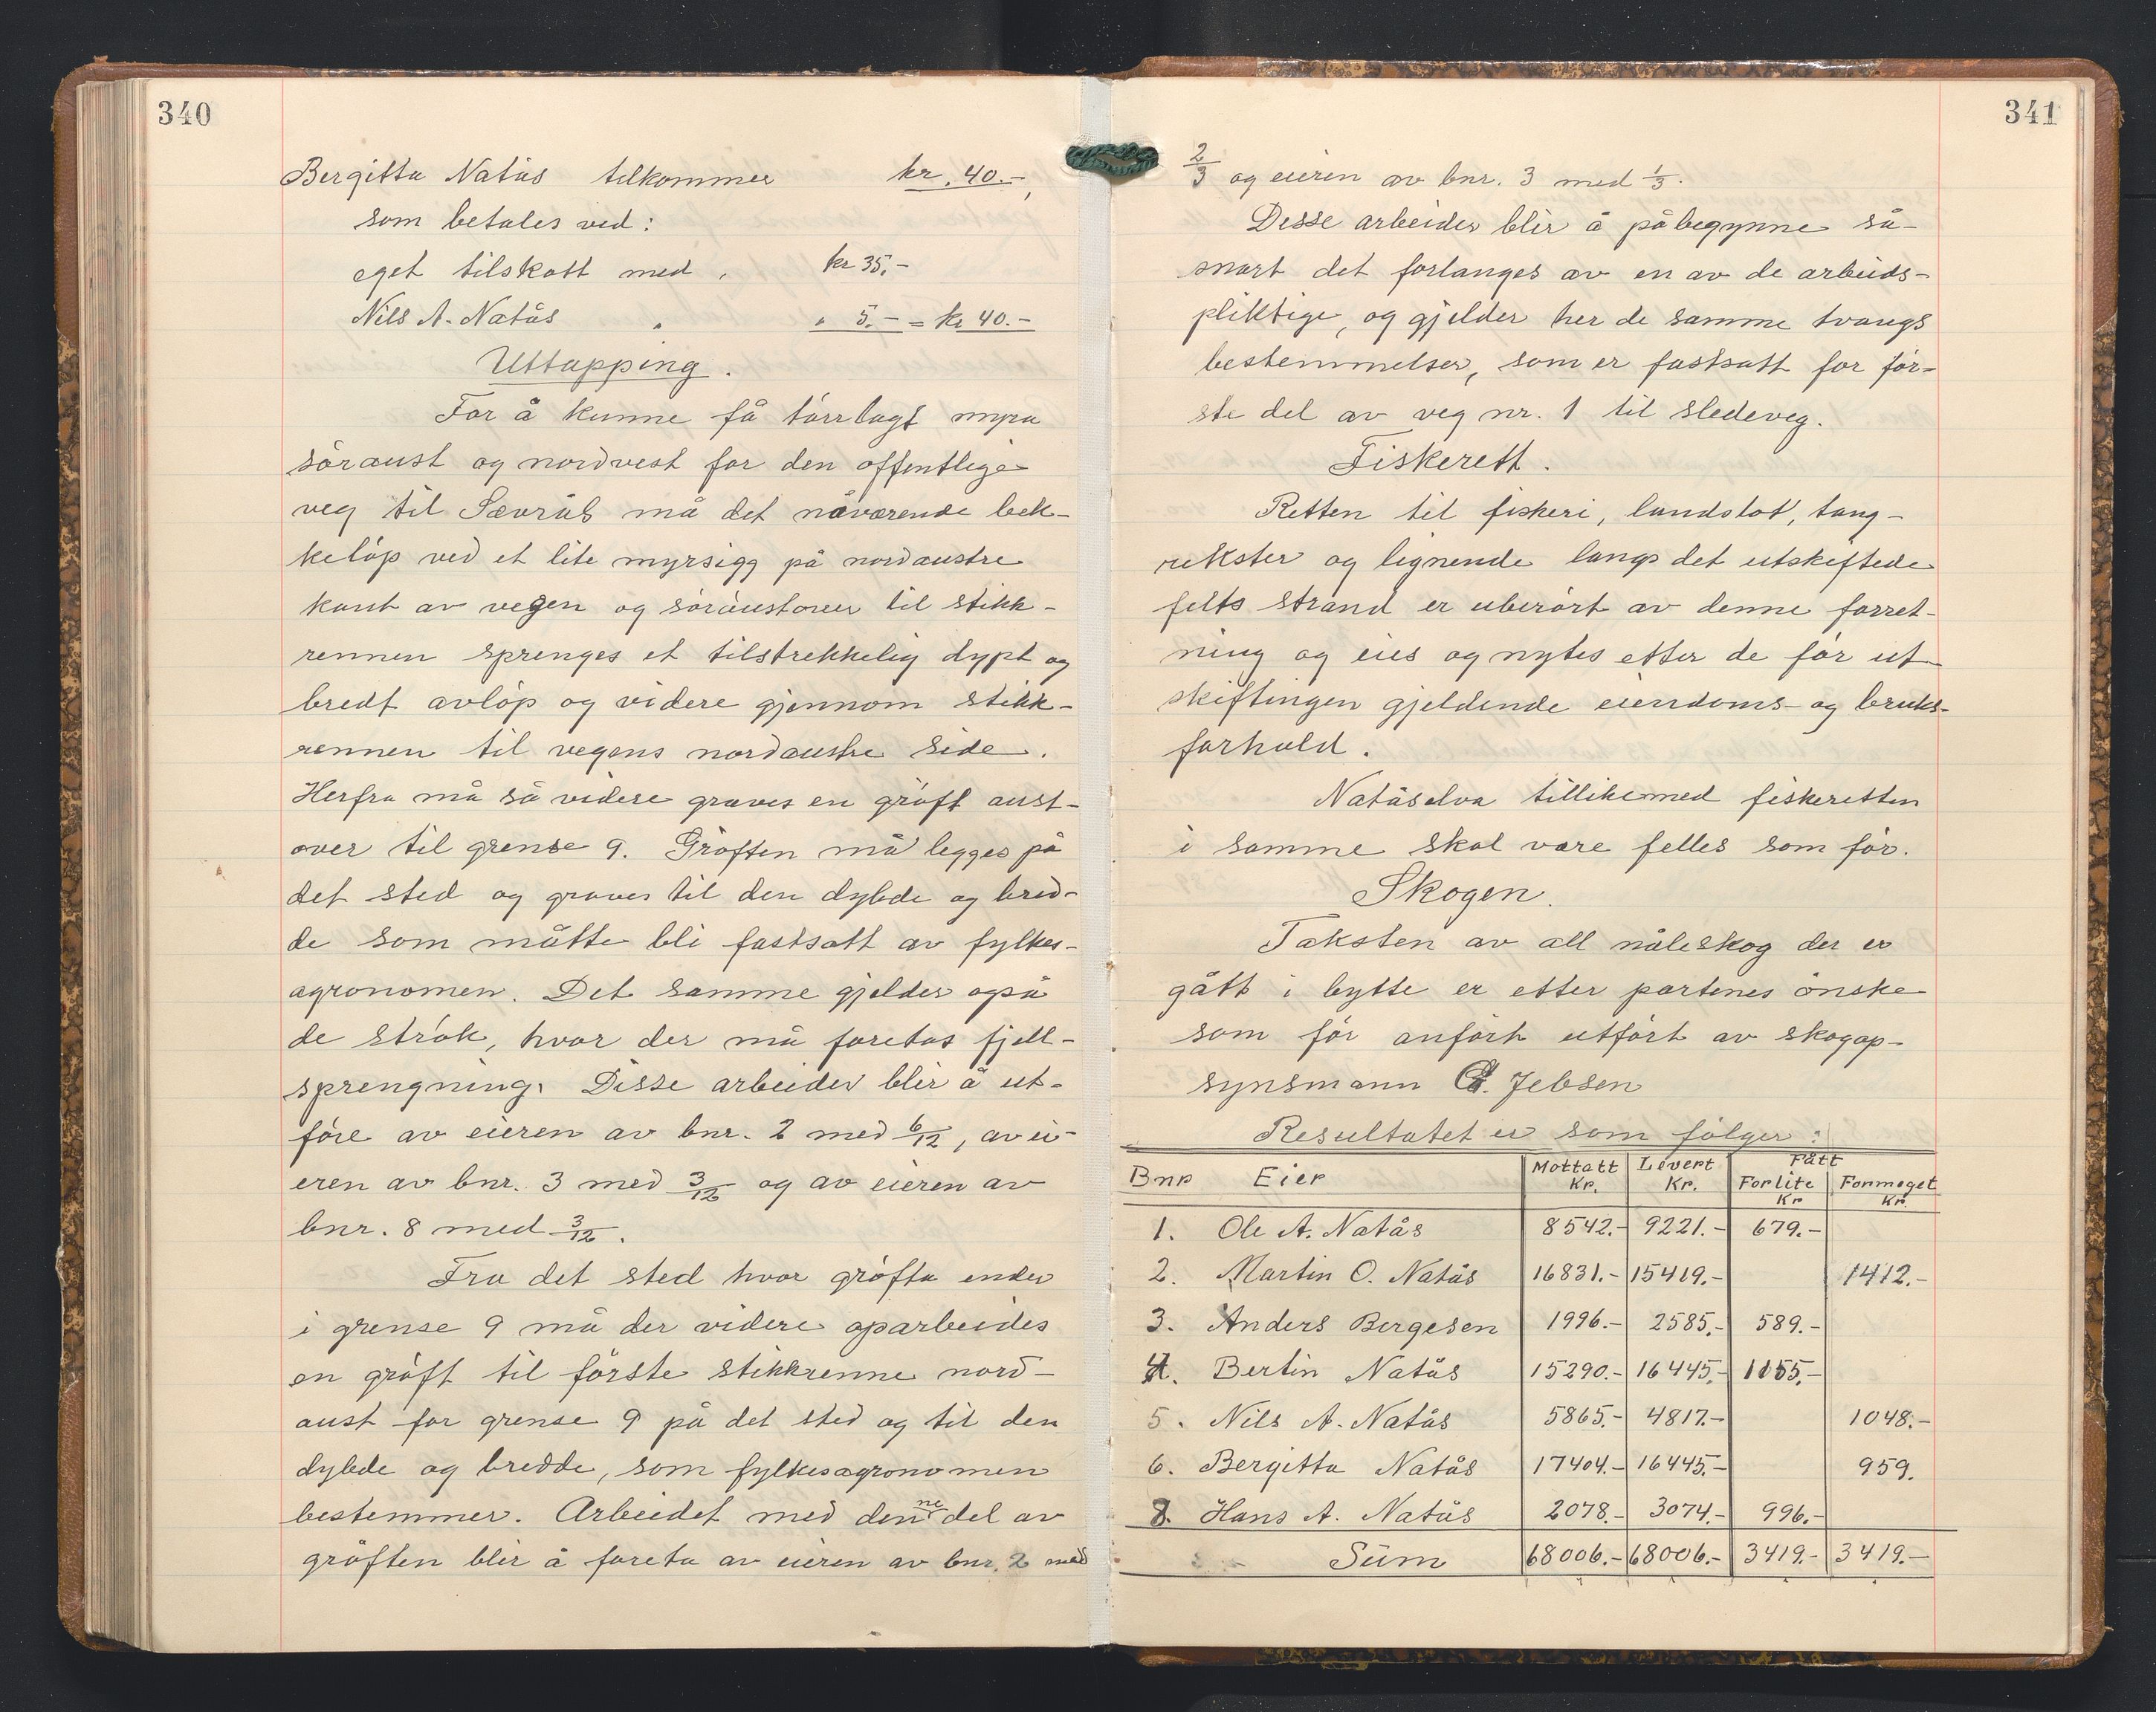 340
Bergitta Natås tilkommer kr. 40.-,
som betales ved:
eget tilskott med . kr 35.-
Nils A. Natås " " 5.- = kr 40.-
Uttapping.
For å kunne få tørrlagt myra
søraust og nordvest for den offentlige
veg til Sævrås må det nåværende bek-
keløp ved et lite myrsigg på nordaustre
kant av vegen og søraustover til stikk-
rennen sprenges et tilstrekkelig dypt og
bredt avløp og videre gjennom stikk-
rennen til vegens nordaustre side.
Herfra må så videre graves en grøft aust-
over til grense 9. Grøften må legges på
det sted og graves til den dybde og bred-
de som måtte bli fastsatt av fylkes-
agronomen. Det samme gjelder også
de strøk, hvor der må foretas fjell-
sprengning. Disse arbeider blir å ut-
føre av eieren av bnr. 2 med 6/12, av ei-
eren av bnr. 3 med 3/12 og av eieren av
bnr. 8 med 3/12.
Fra det sted hvor grøfta ender
i grense 9 må der videre oparbeides
en grøft til første stikkrenne nord-
aust for grense 9 på det sted og til den
dybde og bredde, som fylkesagronomen
bestemmer. Arbeidet med denne del av
grøften blir å foreta av eieren av bnr. 2 med
341
2/3 og eieren av bnr. 3 med 1/3.
Disse arbeider blir å påbegynne så-
snart det forlanges av en av de arbeids-
pliktige, og gjelder her de samme tvangs
bestemmelser, som er fastsatt for før-
ste del av veg nr. 1 til sledeveg.
Fiskerett.
Retten til fiskeri, landslot, tang-
rekster og lignende langs det utskiftede
felts strand er uberørt av denne forret-
ning og eies og nytes etter de før ut-
skiftingen gjeldende eiendoms- og bruks-
forhold.
Natåselva tillikemed fiskeretten
i samme skal være felles som før.
Skogen.
Taksten av all nåleskog der er
gått i bytte er etter partenes ønske
som før anført utført av skogop-
synsmann Jebsen
Resultatet er som følger:
Bnr Eier Mottatt Kr. Levert Kr. Fått Forlite Kr Formeget Kr.
1. Ole A. Natås 8542.- 9221.- 679.-
2. Martin O. Natås 16831.- 15419.- 1412.-
3. Anders Birgesen 1996.- 2585.- 589.-
4. Bertin Natås 15290.- 16445.- 1155.-
5. Nils A. Natås 5865.- 4817.- 1048.-
6. Bergitta Natås 17404.- 16445.- 959.
8. Hans A. Natås 2078.- 3074.- 996.-
Sum 68006.- 68006.- 3419.- 3419.-